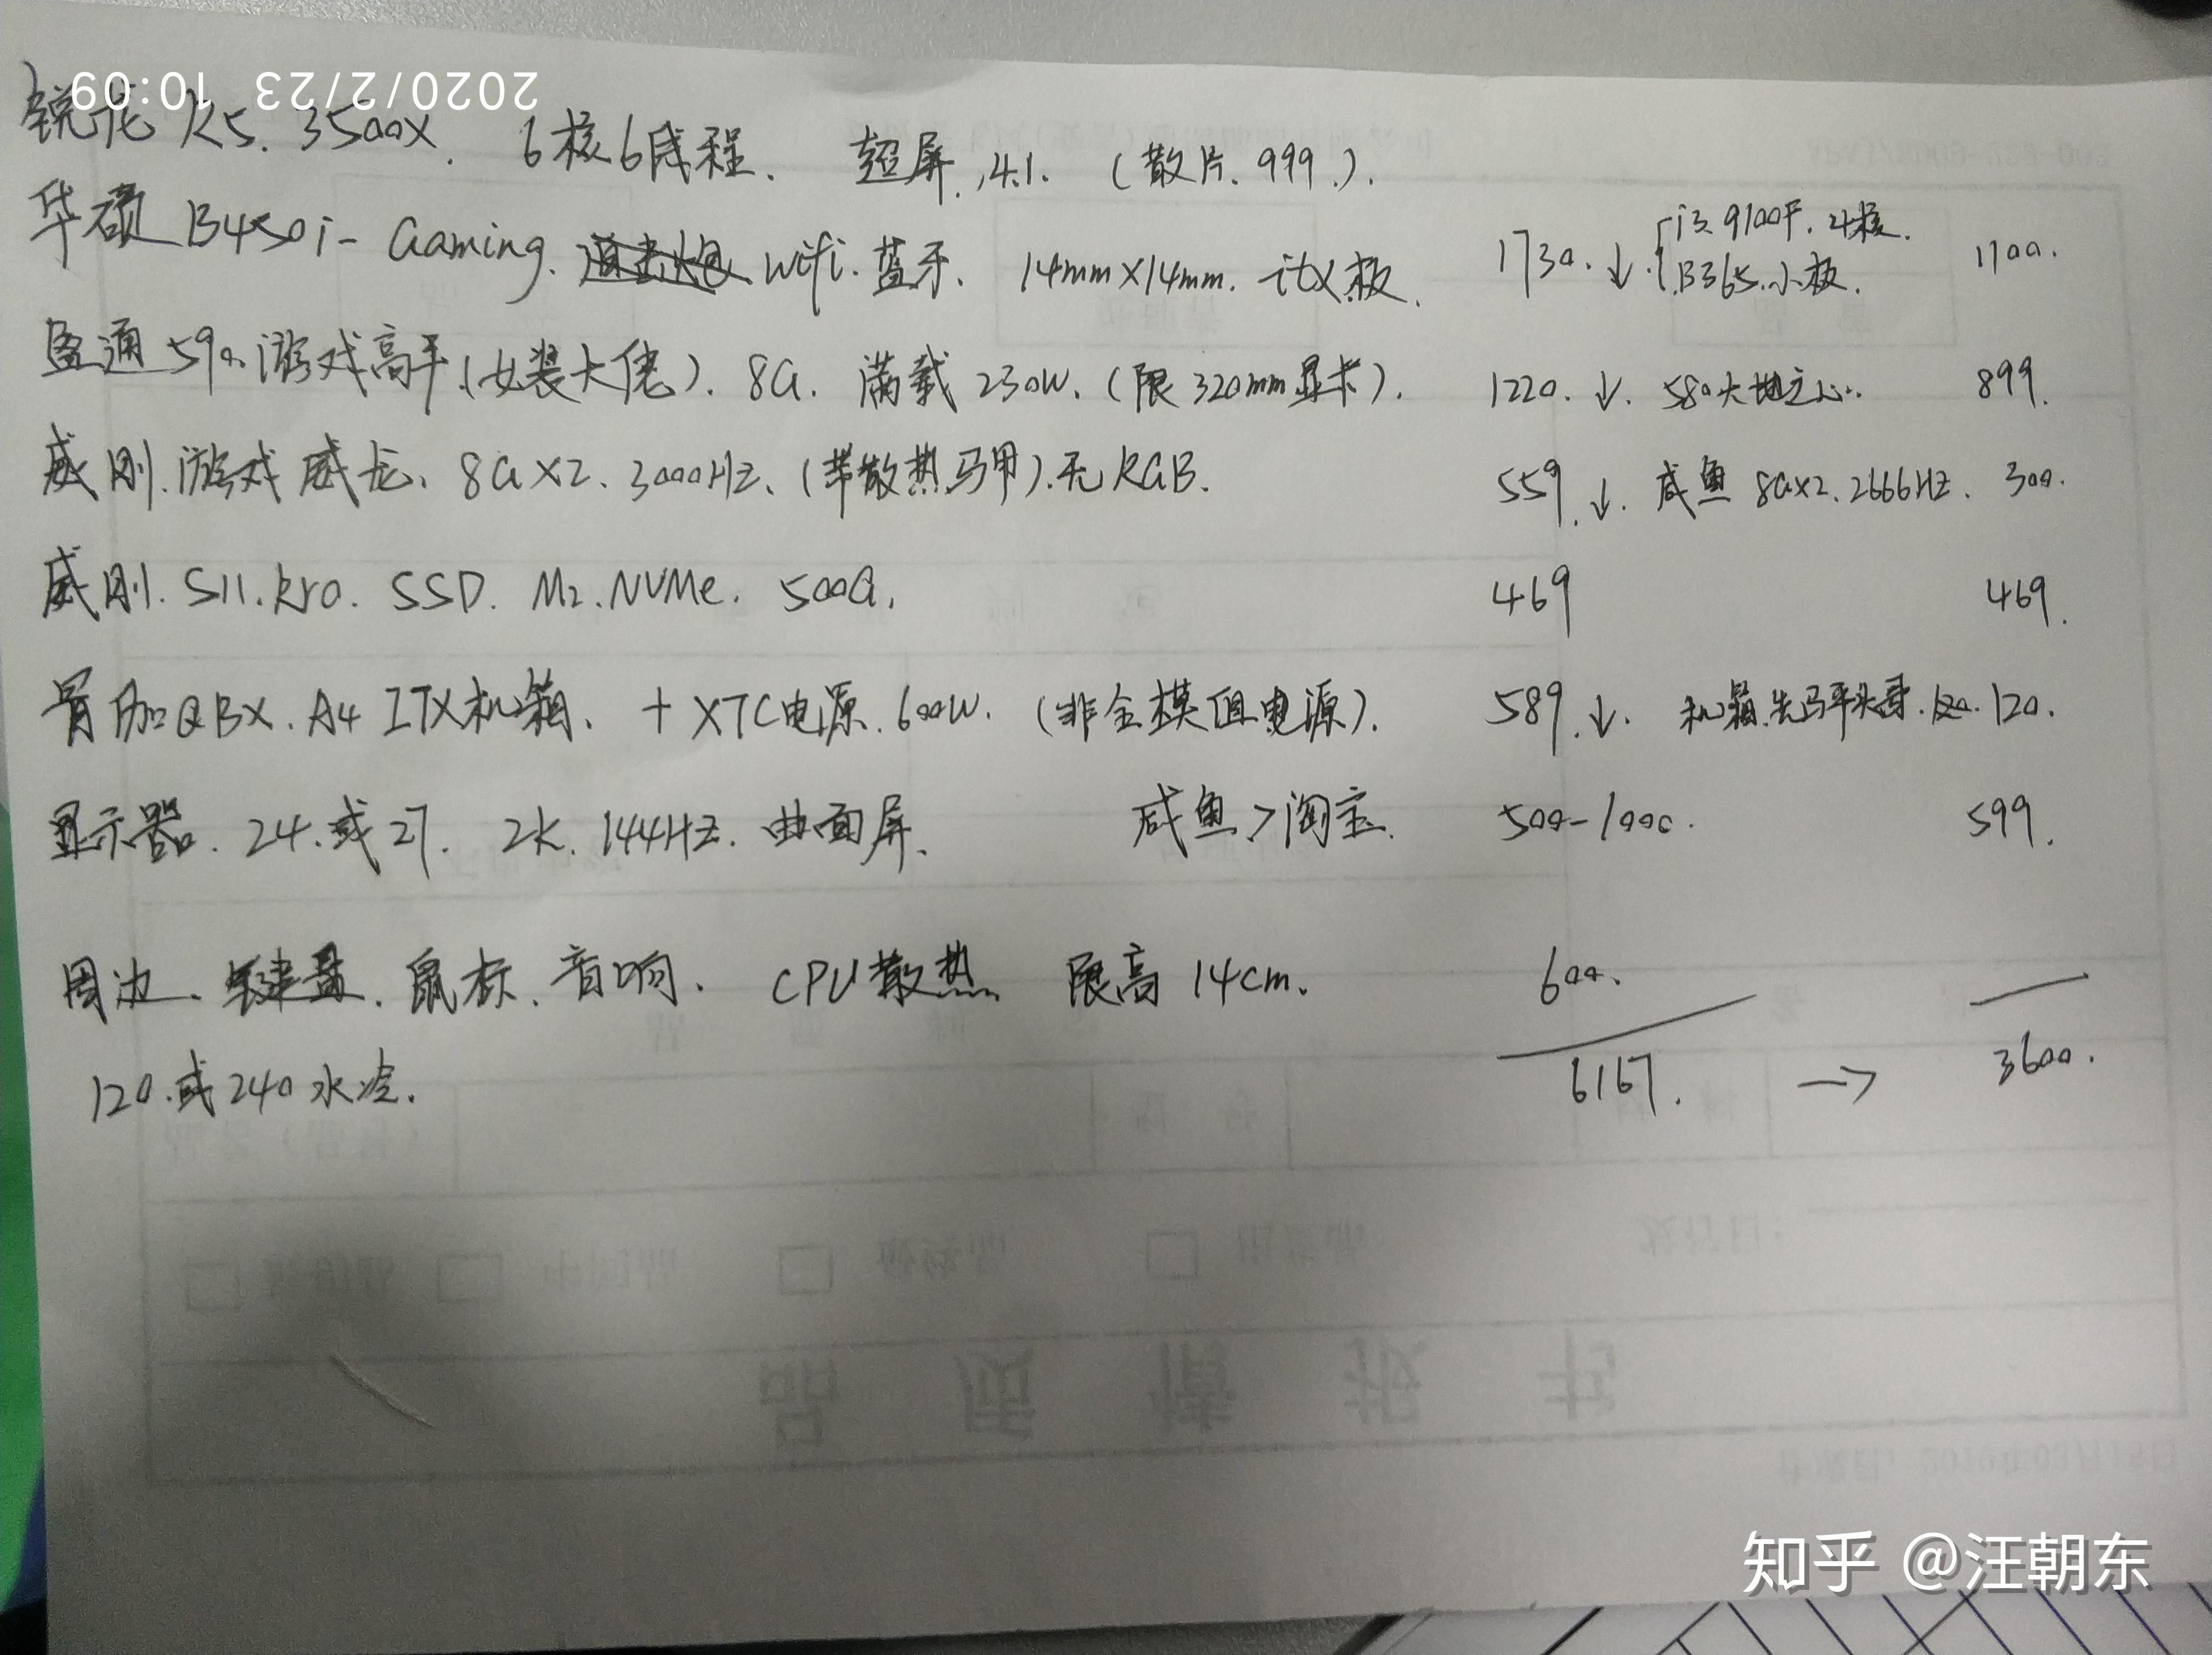 2020/2/23 10:09
锐龙 R5. 3500X. 6核6线程. 超屏.,4.1. (散片.999.).
华硕 B450i-Gaming. wifi.蓝牙. 14mm×14mm. itx板. 1730.↓. i3 9100F.4核. B365.小板. 1100.
盈通590.游戏高手(女装大佬). 8G. 满载230W. (限320mm显卡). 1220.↓. 580大地之心. 899.
威刚.游戏威龙. 8G×2. 3000HZ. (带散热马甲).无RGB. 559.↓. 咸鱼 8G×2.2666HZ. 300.
威刚.S11.Pro. SSD. M2.NVMe. 500G. 469 469.
骨伽QBX.A4 ITX机箱. + XTC电源.600W. (非全模组电源). 589.↓. 机箱.先马平头哥.120.
显示器. 24.或27. 2K. 144HZ. 曲面屏. 咸鱼>淘宝. 500-1000. 599.
周边. 键盘.鼠标.音响. CPU散热 限高14cm. 600.
120.或240水冷. 6167. → 3600.
品质情报书
知乎 @汪朝东